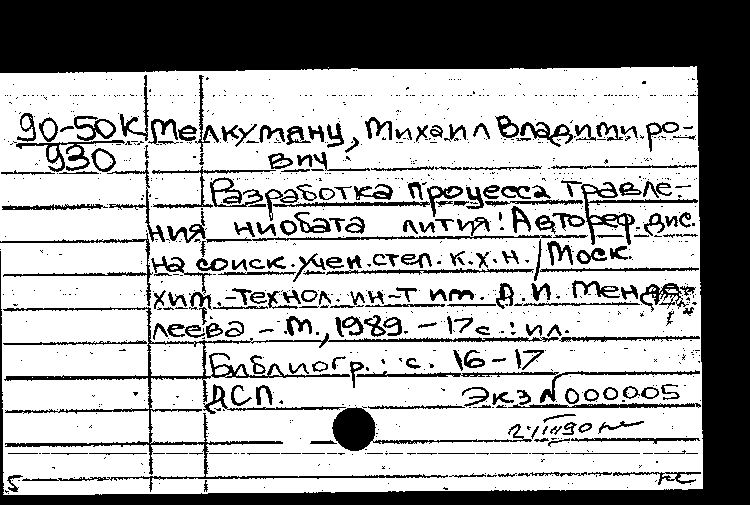 90-50К Мелкумянц, Михаил Владимиро-
930 вич
Разработка процесса травле-
ния ниобата лития: Автореф. дис.
на соиск. учен. степ. к.х.н. / Моск.
хим.-технол. ин-т им. Д. И. Менде-
леева - М., 1989. - 17 с. : ил.
Библиогр.: с. 16-17
ДСП. Экз N 000005
5